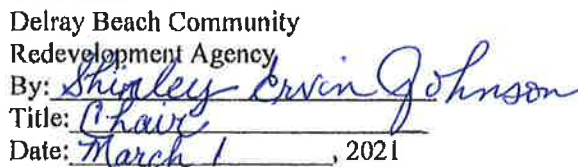 Delray Beach Community
Redevelopment Agency
By: Shirley Ervin Johnson
Title: Chair
Date: March 1, 2021